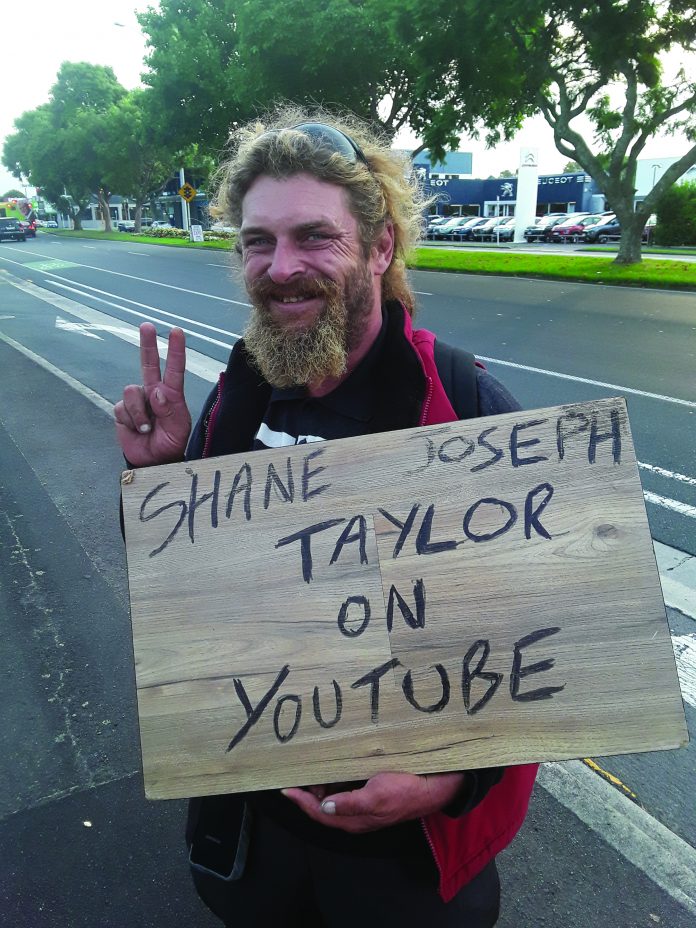 PEUGEOT
SHANE JOSEPH
TAYLOR
ON
YOUTUBE